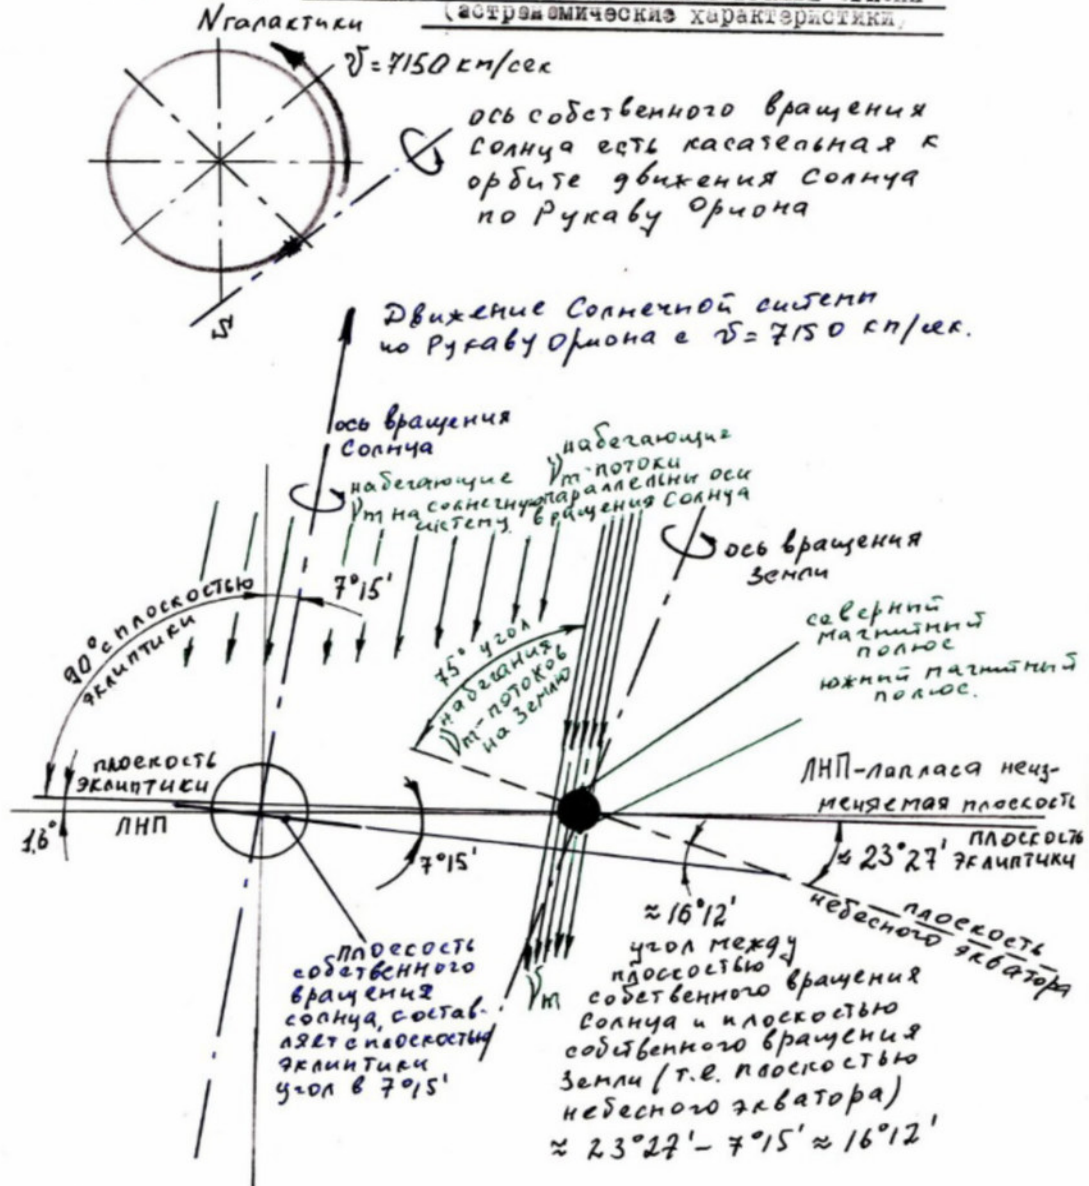 (астрономические характеристики,
N галактики
V = 7150 км/сек
ось собственного вращения
Солнца есть касательная к
орбите движения Солнца
по Рукаву Ориона
S
Движение Солнечной системы
по Рукаву Ориона с V = 7150 км/сек.
ось вращения
Солнца
набегающие
γm на солнечную
систему.
набегающие
γm-потоки
параллельны оси
вращения Солнца
ось вращения
Земли
7°15'
90° с плоскостью
эклиптики
75° угол
набегания
γm-потоков
на Землю
северный
магнитный
полюс
южный магнитный
полюс.
плоскость
эклиптики
ЛНП
1,6°
ЛНП-Лапласа неиз-
меняемая плоскость
плоскость
эклиптики
≈ 23°27'
7°15'
плоскость
небесного экватора
≈16°12'
угол между
плоскостью
собственного вращения
Солнца и плоскостью
собственного вращения
Земли (т.е. плоскостью
небесного экватора)
≈ 23°27' - 7°15' ≈ 16°12'
γm
плоскость
собственного
вращения
солнца, состав-
ляет с плоскостью
эклиптики
угол в 7°15'